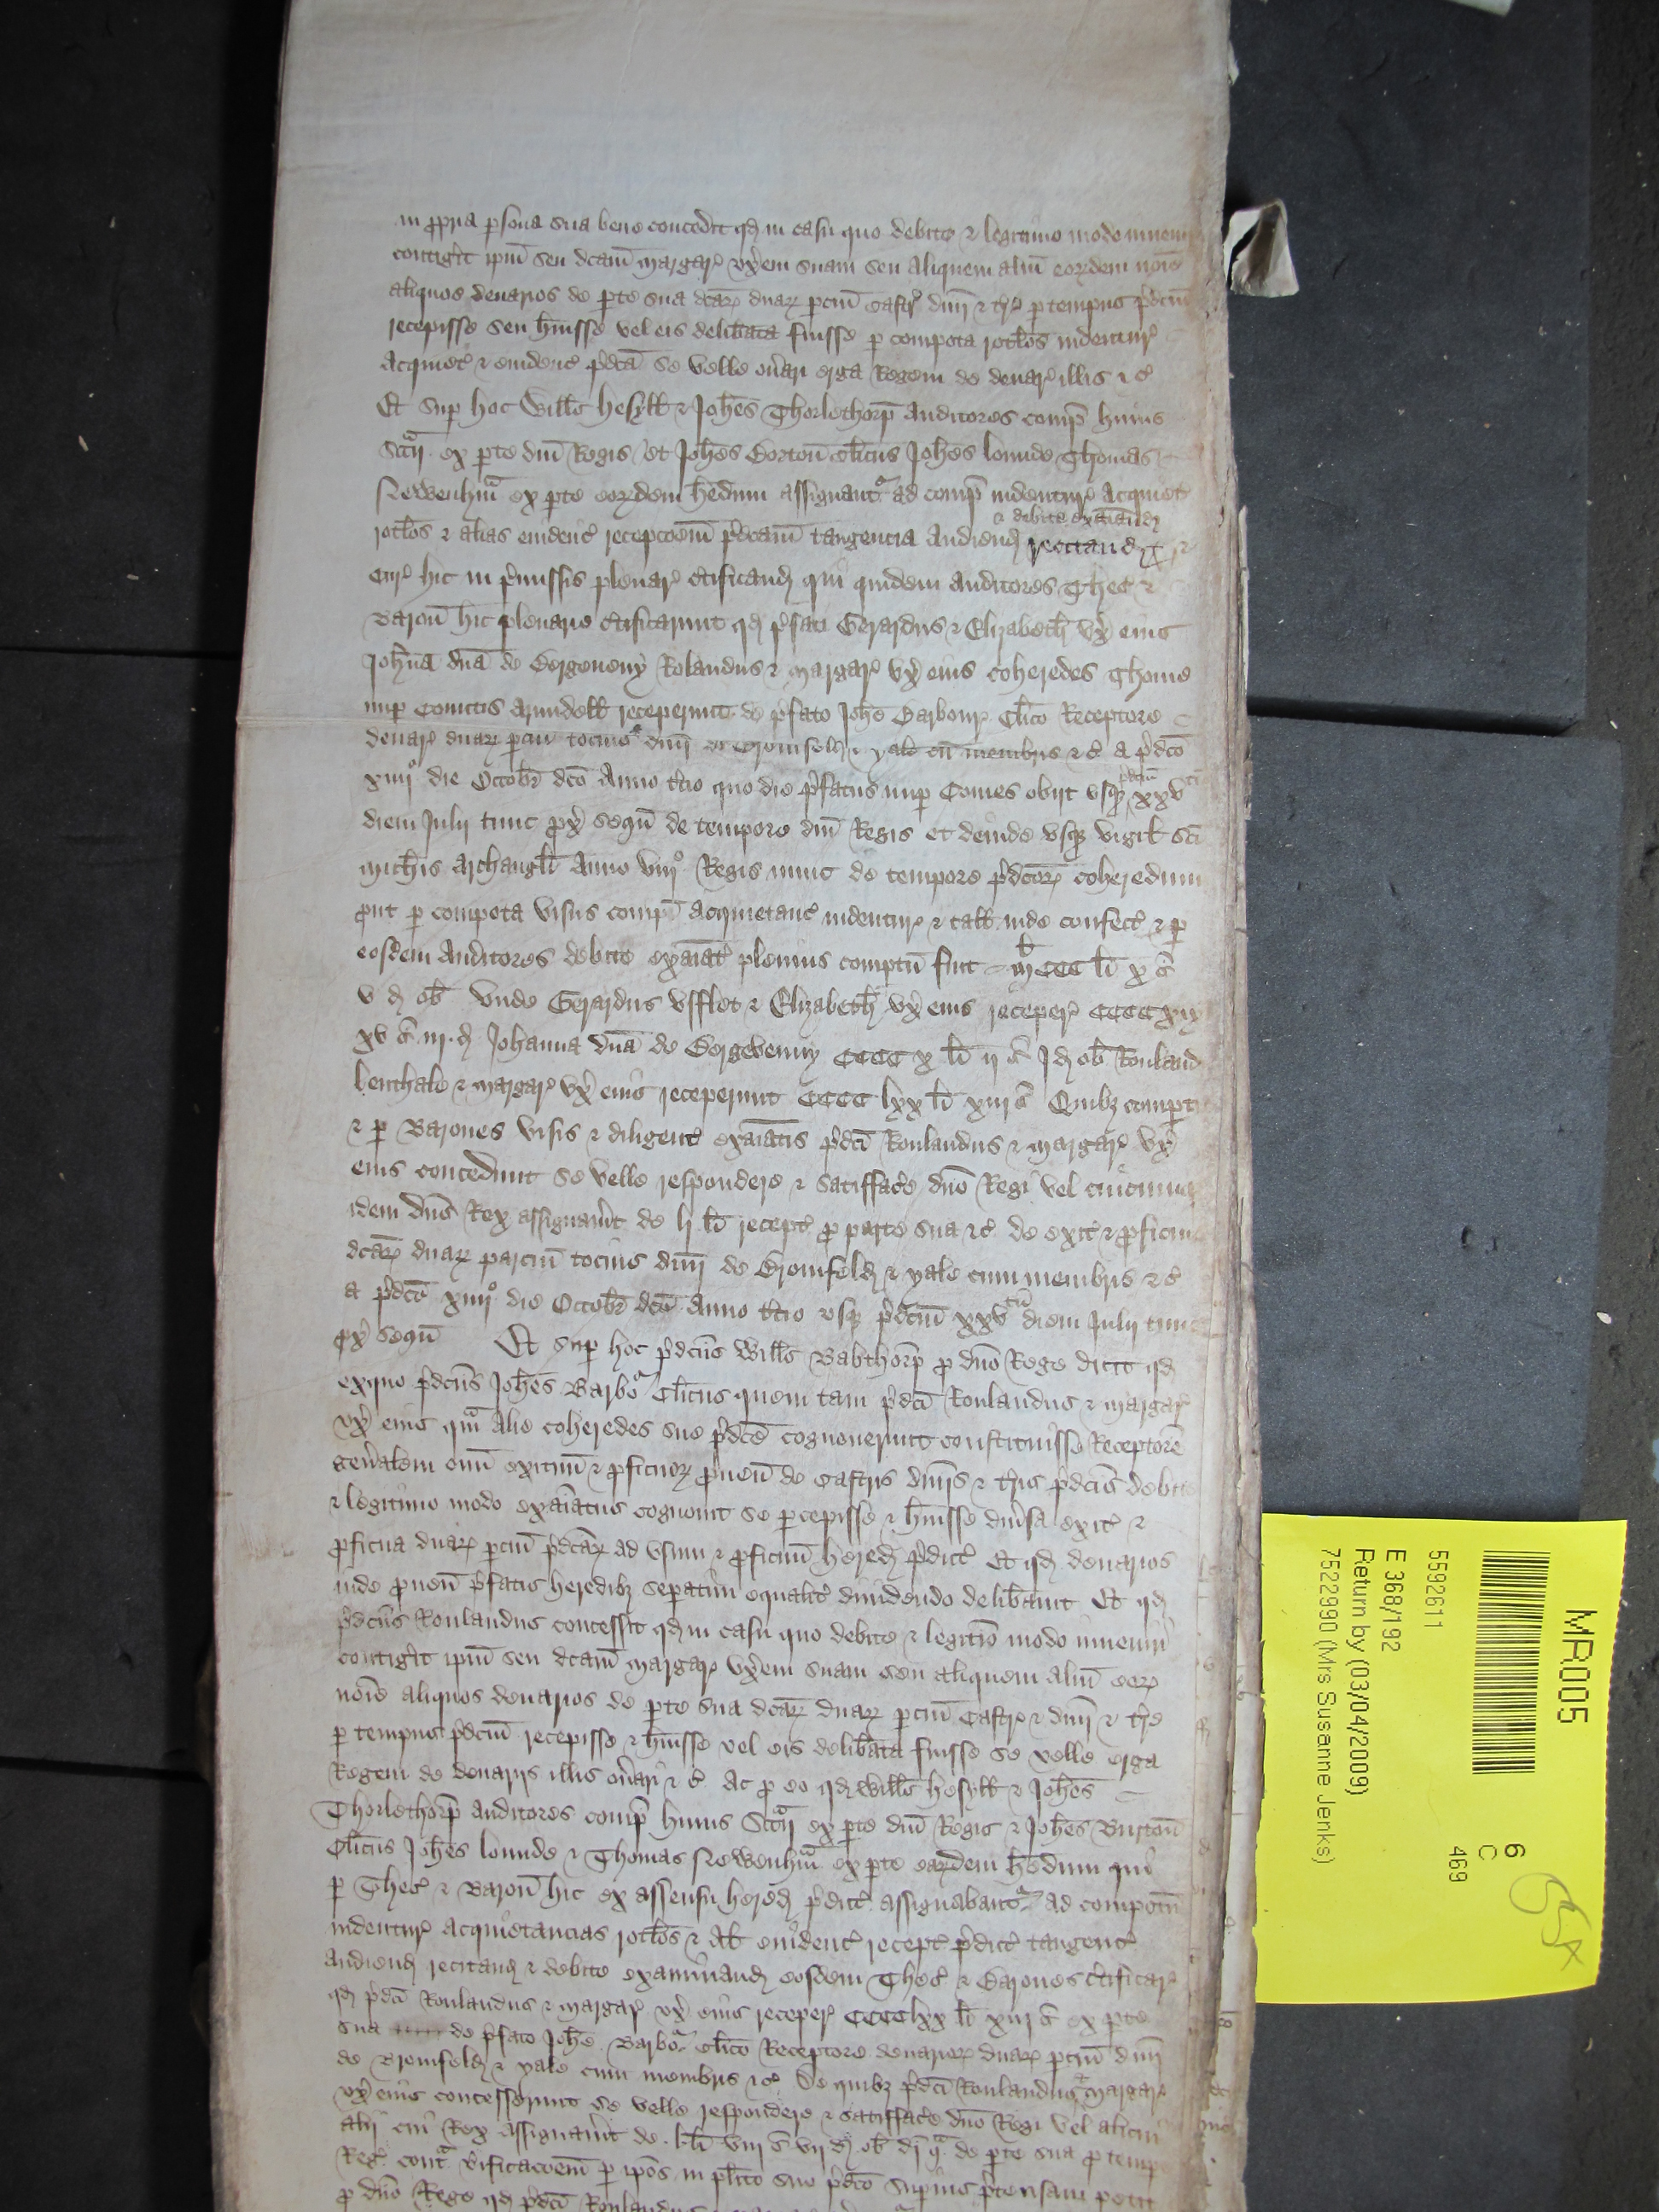 in ppria psona sua bene concedit qd in casu quo debito & legitimo modo
contigit ipm seu dcam Margar uxem suam seu aliquem alm eordem noie
aliquos denarios de pte sua dcar duar pciu castr dnii & tre p tempus pdcm
recepisse seu huisse vel eis delibata fuisse p compota rotlos indentur
acquiet & evidenc pdca se velle onari erga Regem de denar illis &c
Et sup hoc Willus Hesyll & Johes Thorlethorp auditores comp huius
Sccii ex pte dni Regis et Johes Bortou clicus Johes Lounde Thomas
Newenham ex pte eordem hedum assignant ad comp indentur acquiet
& debite exaiand
rotlos & alias evidenc recepcoem pdcam tangencia audiend recitand
Cur hic in pmissis plenar ctificand qui quidem auditores Thes &
Baron hic plenarie ctificarunt qd pfati Gerardus & Elizabeth ux eius
Johna dna de Bergeveny Rolandus & Margar ux eius coheredes Thome
nup Comitis Arundell receperunt de pfato Johe Barbour Clico Receptore
denar duar pciu tocius dnii de Bromfeld & Yale cu membris &c a pdco
xiii° die Octobr dco anno tcio quo die pfatus nup Comes obiit usq pdcm xxv
diem Julii tunc px sequ de tempore dni Regis et deinde usq vigil sci
Michis Archangli anno viii° Regis nunc de tempore pdcor coheredum
put p compota visus comp acquietanc indentur & tall inde confect & p
eosdem auditores debite exaiat plenius comptu fuit MCCC li x s
v d ob unde Gerardus Ufflet & Elizabeth ux eius receper CCCC xix
xv s iii d Johanna dna de Bergevenny CCCC x li ii s I d ob Rouland
Lenthale & Margar ux eius receperunt CCCC lxx li xiii s Quibz compt
& p Barones visis & diligent exaiatis pdci Roulandus & Margar ux
eius concedunt se velle respondere & satisface dno Regi vel cuicumq
idem dns Rex assignavit de li li recept p parte sua &c de exit & pficiu
dcar duar parciu tocius dnii de Bromfeld & Yale cum membris &c
a pdco xiii° die Octobr dco anno tcio usq pdcm xxv tu diem Julii tunc
px sequ Et sup hoc pdcus Willus Babthorp p dno Rege dicit qd
exquo pdcus Johes Barbo Clicus quem tam pdci Roulandus & Margar
ux eius qm alie coheredes sue pdce cognoverunt constituisse Receptore
genalem oim exituu & pficuor pveu de castris dniis & tris pdcis debite
& legitimo modo exaiatus cognovit se pcepisse & huisse divsa exit &
pficua duar pciu pdcar ad usum & pficuu hered pdict Et qd denarios
inde pveu pfatis heredibz sepatim equalit dividendo delibavit Et qd
pdcus Roulandus concessit qd in casu quo debite & legitio modo inveniri
contigit ipm seu dcam Margar uxem suam seu aliquem alm eor
noie aliquos denarios de pte sua dcar duar pciu castr & dnii & tre
p tempus pdcm recepisse & huisse vel eis delibata fuisse se velle erga
Regem de denariis illis onari &c Ac p eo qd Willus Hesyll & Johes
Thorlethorp auditores comp huius Sccii ex pte dni Regis & Johes Burton
Clicus Johes Lounde & Thomas Newenham ex pte eordem hedum qui
p Thes & Baron hic ex assensu hered pdict assignabant ad compotu
indentur acquietancias rotlos & al evidenc recept pdict tangent
audiend recitand & debite examinand eosdem Thes & Barones ctificar
qd pdci Roulandus & Margar ux eius receper CCCC lxx li xiii s ex pte
sua de pfato Johe Barbo Clico Receptore denarior duar pciu dnii
de Bromfeld & Yale cum membris &c De quibz pdci Roulandus & Margar
ux eius concesserunt se velle respondere & satisface dno Regi vel alicui
alii cui Rex assignavit de li li viii s vii d ob di q de pte sua p temp
Reg cont vificacoem p ipos in plito suo pdco supius ptensam petit
p dno Rege qd pdci Roulandus
MR005
5592611
E 368/192
Return by (03/04/2009)
7522990 (Mrs Susanne Jenks)
6
C
469